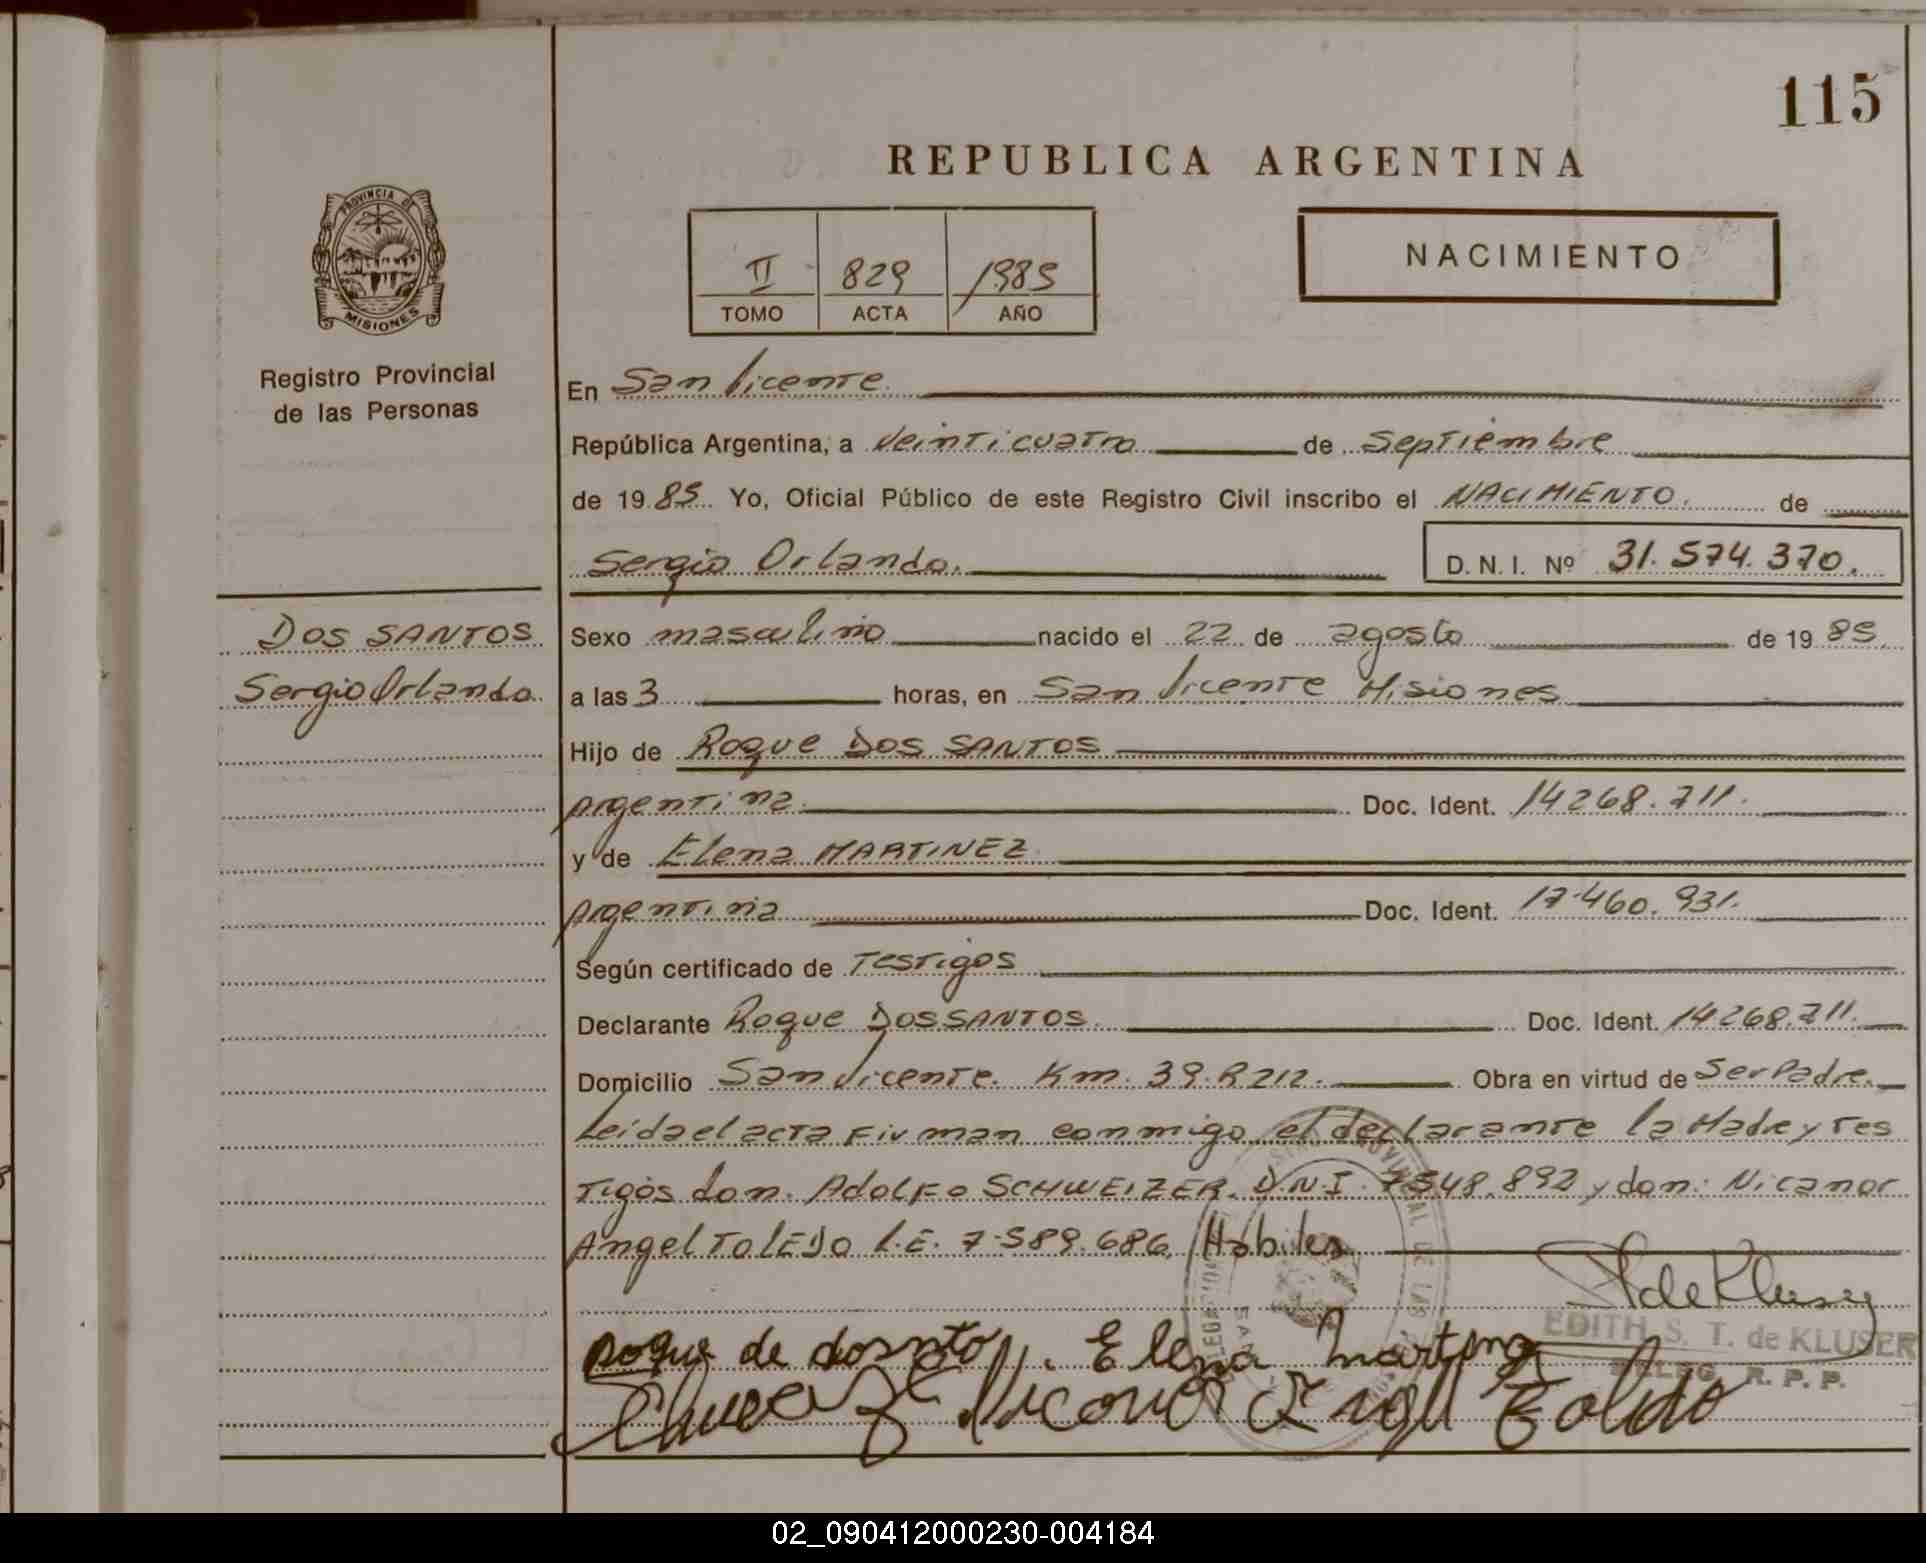 115
REPUBLICA ARGENTINA
PROVINCIA DE
MISIONES
Registro Provincial
de las Personas
II 829 1985
TOMO ACTA AÑO
NACIMIENTO
En San Vicente
República Argentina, a Veinticuatro de Septiembre
de 1985 Yo, Oficial Público de este Registro Civil inscribo el NACIMIENTO. de
Sergio Orlando. D. N. I. Nº 31.574.370.
DOS SANTOS
Sergio Orlando.
Sexo masculino nacido el 22 de agosto de 1985
a las 3 horas, en San Vicente Misiones
Hijo de Roque DOS SANTOS
Argentina Doc. Ident. 14268.711.
y de Elena MARTINEZ
Argentina Doc. Ident. 17.460.931.
Según certificado de Testigos
Declarante Roque DOS SANTOS. Doc. Ident. 14268.711.
Domicilio San Vicente. Km. 39.R212. Obra en virtud de Ser Padre.
Leida el acta Firman conmigo el declarante la Madre y Tes
Tigos don. Adolfo SCHWEIZER. D.N.I. 7548.892 y don: Nicanor
Angel TOLEDO L.E. 7.589.686 Habiles
EDITH S. T. de KLUSER
DELEG. R. P. P.
Elena
02_090412000230-004184